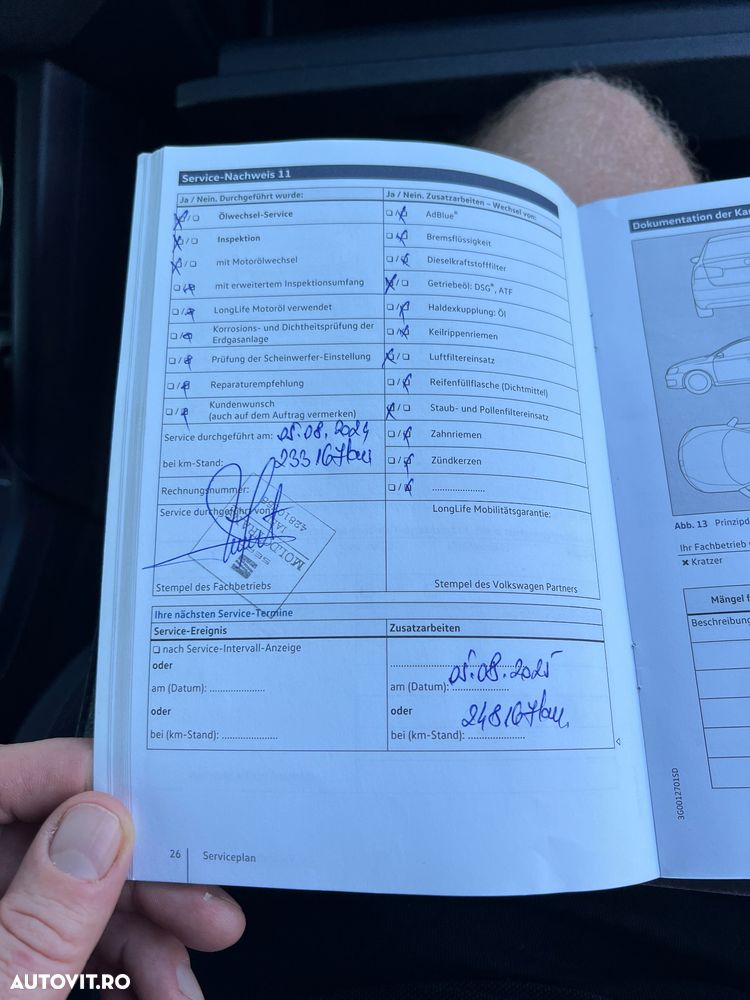 Service-Nachweis 11
Ja / Nein. Durchgeführt wurde:
Ölwechsel-Service
Inspektion
mit Motorölwechsel
mit erweitertem Inspektionsumfang
LongLife Motoröl verwendet
Korrosions- und Dichtheitsprüfung der
Erdgasanlage
Prüfung der Scheinwerfer-Einstellung
Reparaturempfehlung
Kundenwunsch
(auch auf dem Auftrag vermerken)
Service durchgeführt am: 05.08.2024
bei km-Stand: 233 167 km
Rechnungsnummer:
Service durchgeführt von:
Stempel des Fachbetriebs
Ja / Nein. Zusatzarbeiten – Wechsel von:
AdBlue®
Bremsflüssigkeit
Dieselkraftstofffilter
Getriebeöl: DSG®, ATF
Haldexkupplung: Öl
Keilrippenriemen
Luftfiltereinsatz
Reifenfüllflasche (Dichtmittel)
Staub- und Pollenfiltereinsatz
Zahnriemen
Zündkerzen
....................
LongLife Mobilitätsgarantie:
Stempel des Volkswagen Partners
Ihre nächsten Service-Termine
Service-Ereignis
nach Service-Intervall-Anzeige
oder
am (Datum): ....................
oder
bei (km-Stand): ....................
Zusatzarbeiten
am (Datum): 05.08.2025
oder
bei (km-Stand): 248 167 km
26 Serviceplan
Dokumentation der
Abb. 13
Ihr Fachbetrieb
× Kratzer
Mängel
3G0012701SD
AUTOVIT.RO